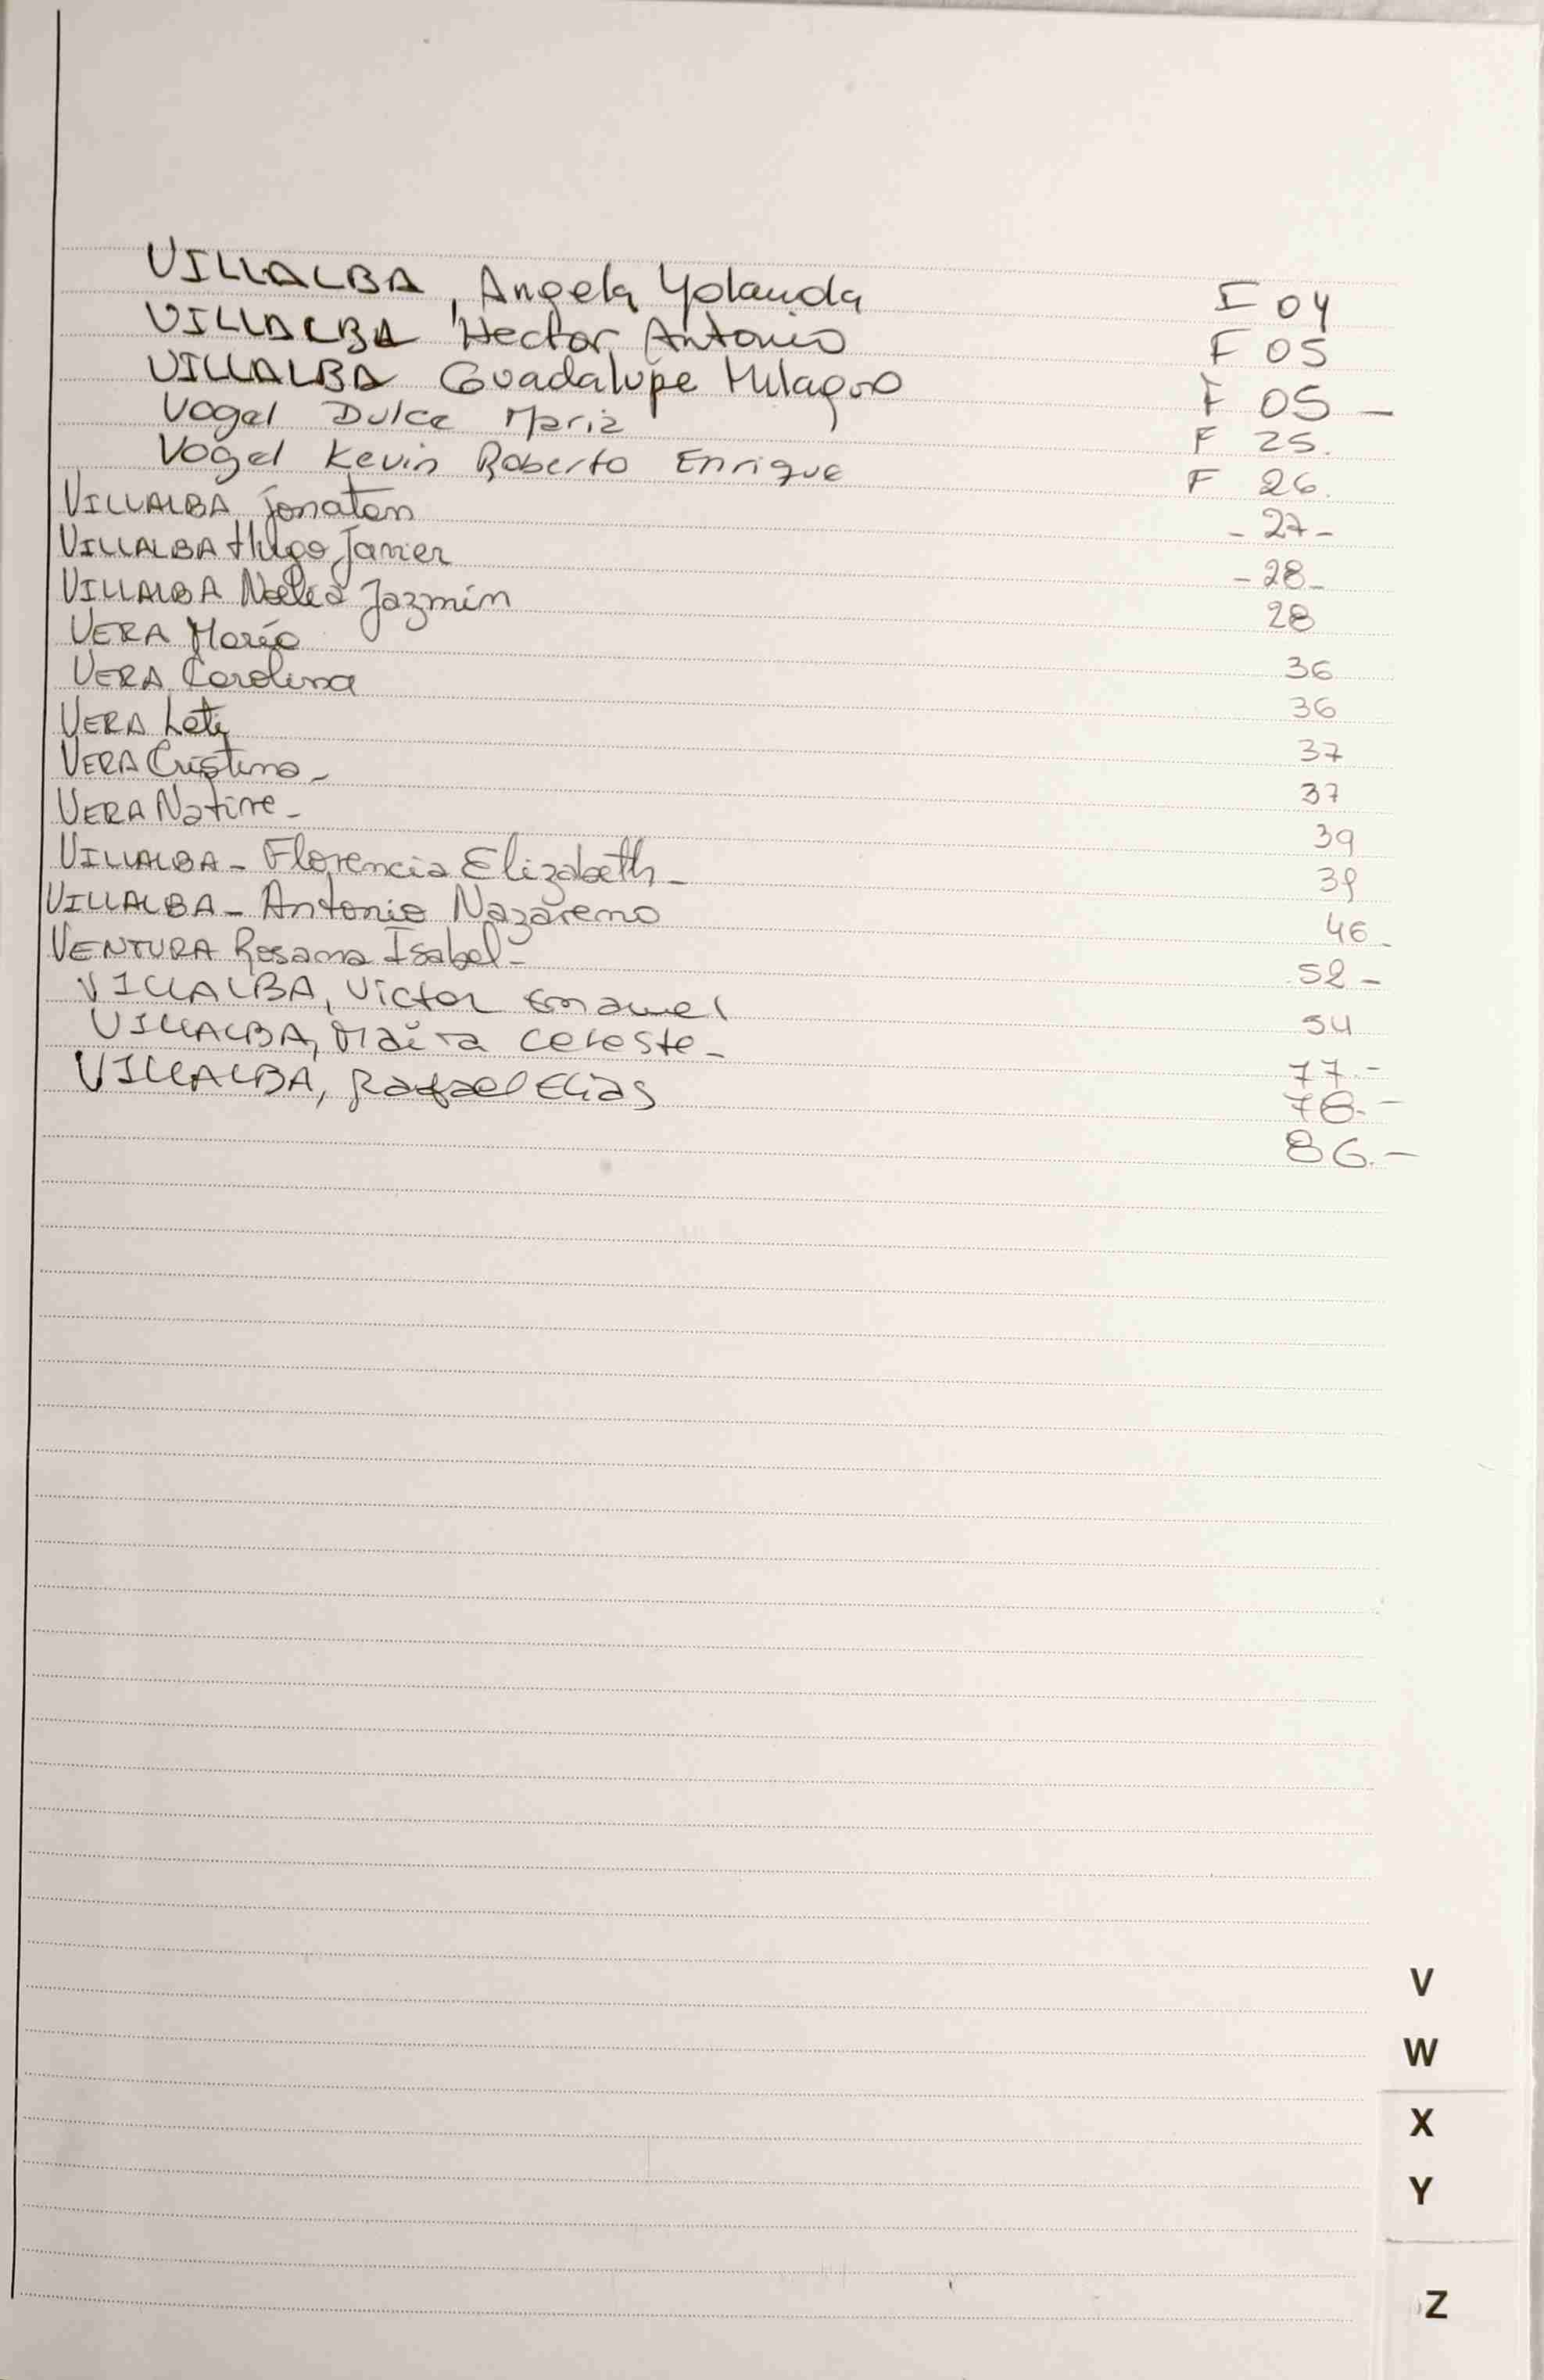 VILLALBA, Angela Yolanda F 04
VILLALBA Hector Antonio F 05
VILLALBA Guadalupe Milagro F 05 -
Vogel Dulce Maria F 25.
Vogel Kevin Roberto Enrique F 26.
VILLALBA Jonatan - 27 -
VILLALBA Hugo Javier - 28 -
VILLALBA Noelia Jazmín 28
VERA Mario 36
VERA Carolina 36
VERA Leti 37
VERA Cristina - 37
VERA Natire - 39
VILLALBA - Florencia Elizabeth - 39
VILLALBA - Antonio Nazareno 46 -
VENTURA Rosana Isabel - 52 -
VILLALBA, Victor Emanuel 54
VILLALBA, Maira Celeste - 77.-
VILLALBA, Rafael Elias 78.-
86.-
V
W
X
Y
Z